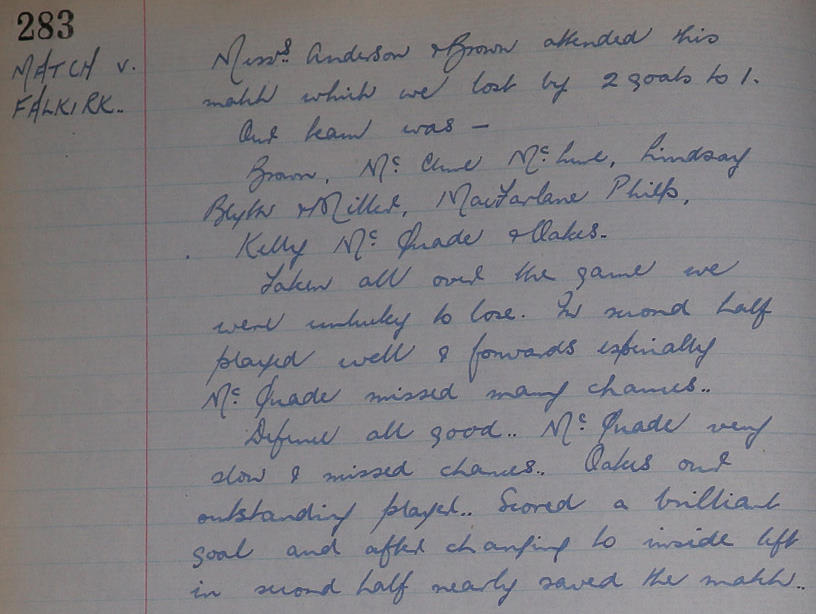 283
MATCH v.
FALKIRK..
Messrs. Anderson & Brown attended this
match which we lost by 2 goals to 1.
Our team was —
Brown, Mc Clure Mc Lure, Lindsay
Blyth & Miller, MacFarlane Philp,
Kelly Mc Quade & Oakes.
Taken all over the game we
were unlucky to lose. In second half
played well & forwards especially
Mc Quade missed many chances..
Defence all good.. Mc Quade very
slow & missed chances.. Oakes our
outstanding player.. Scored a brilliant
goal and after changing to inside left
in second half nearly saved the match..